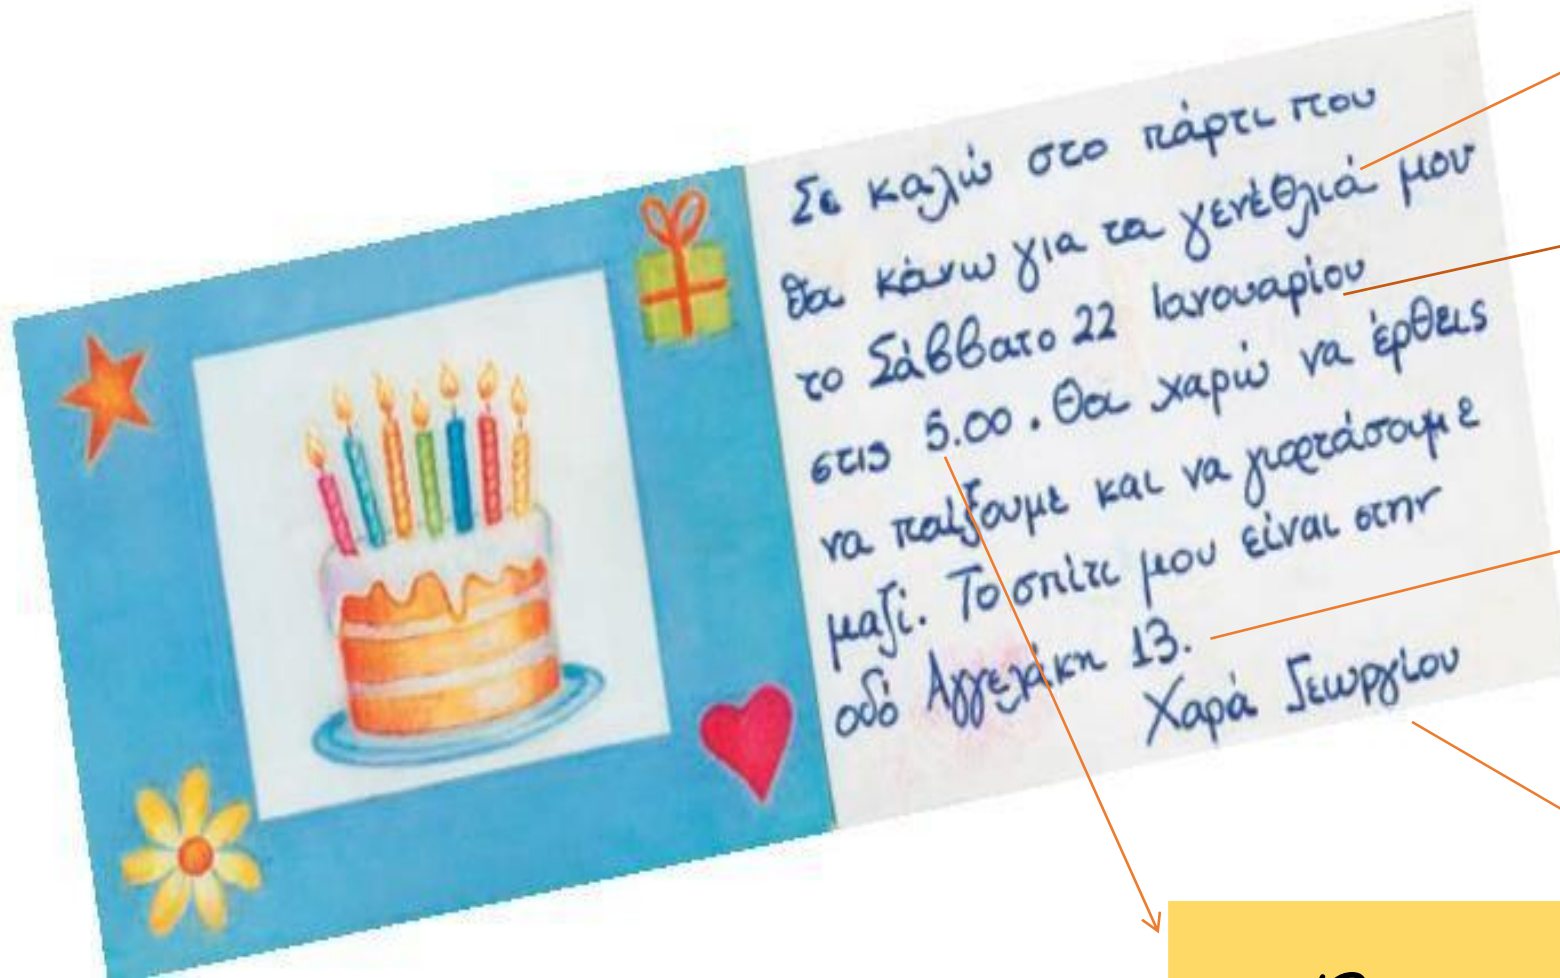 Σε καλώ στο πάρτι που
θα κάνω για τα γενέθλιά μου
το Σάββατο 22 Ιανουαρίου
στις 5.00. Θα χαρώ να έρθεις
να παίξουμε και να γιορτάσουμε
μαζί. Το σπίτι μου είναι στην
οδό Αγγελάκη 13.
Χαρά Γεωργίου